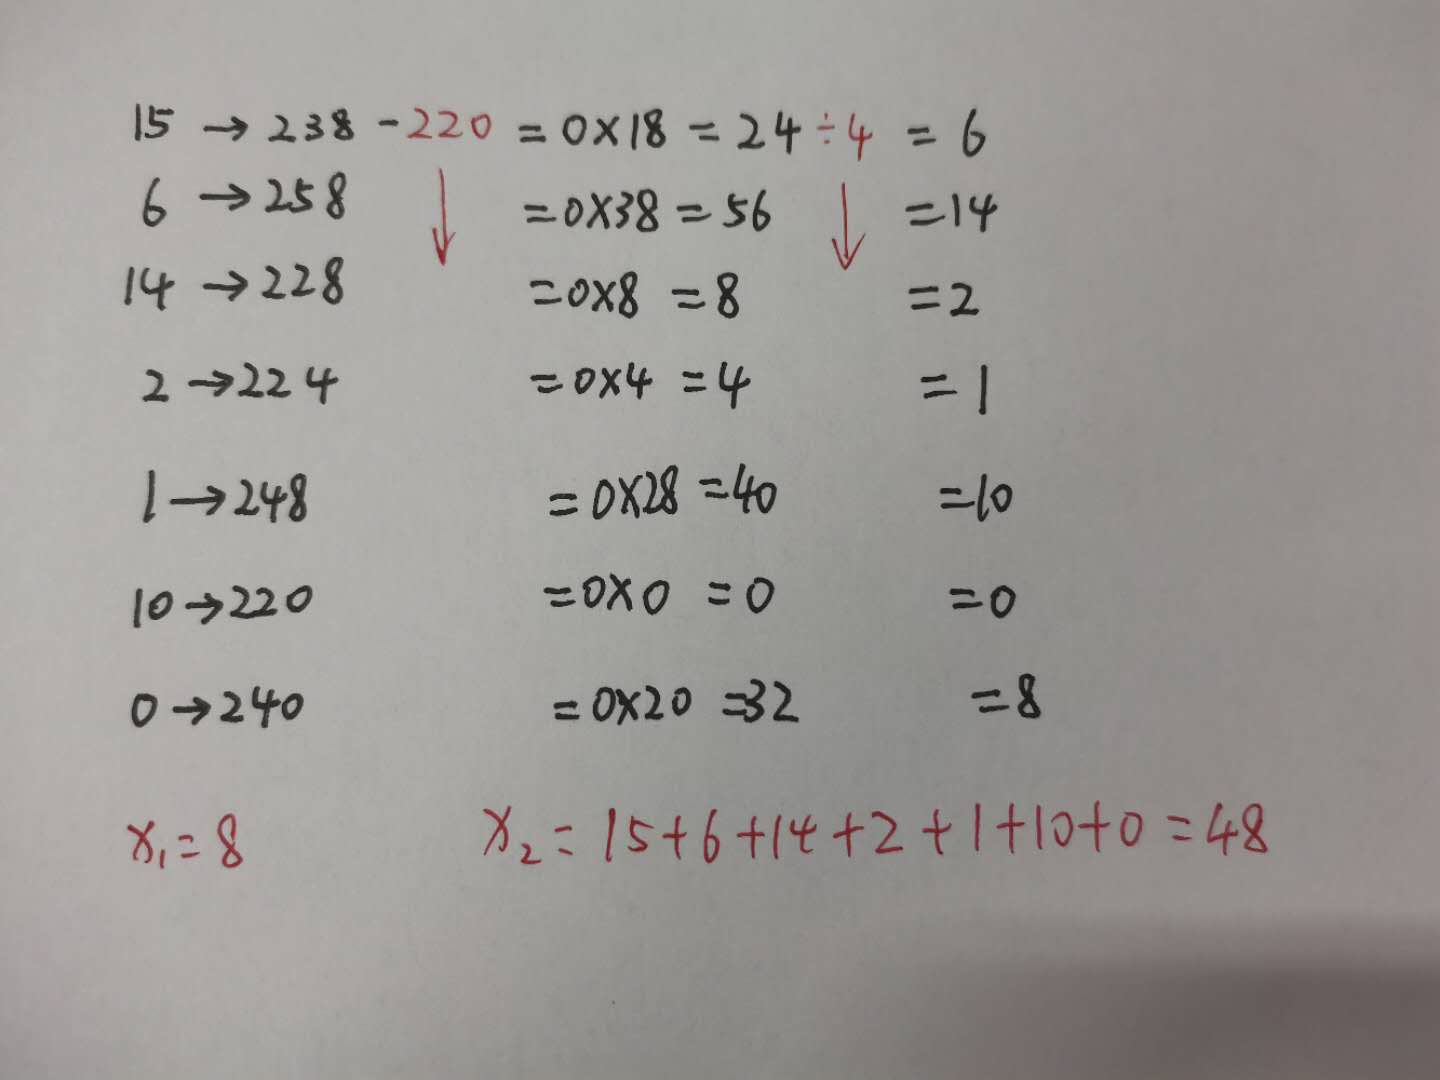 15 → 238 - 220 = 0x18 = 24 ÷ 4 = 6
6 → 258 = 0x38 = 56 = 14
14 → 228 = 0x8 = 8 = 2
2 → 224 = 0x4 = 4 = 1
1 → 248 = 0x28 = 40 = 10
10 → 220 = 0x0 = 0 = 0
0 → 240 = 0x20 = 32 = 8
x₁ = 8 x₂ = 15+6+14+2+1+10+0 = 48